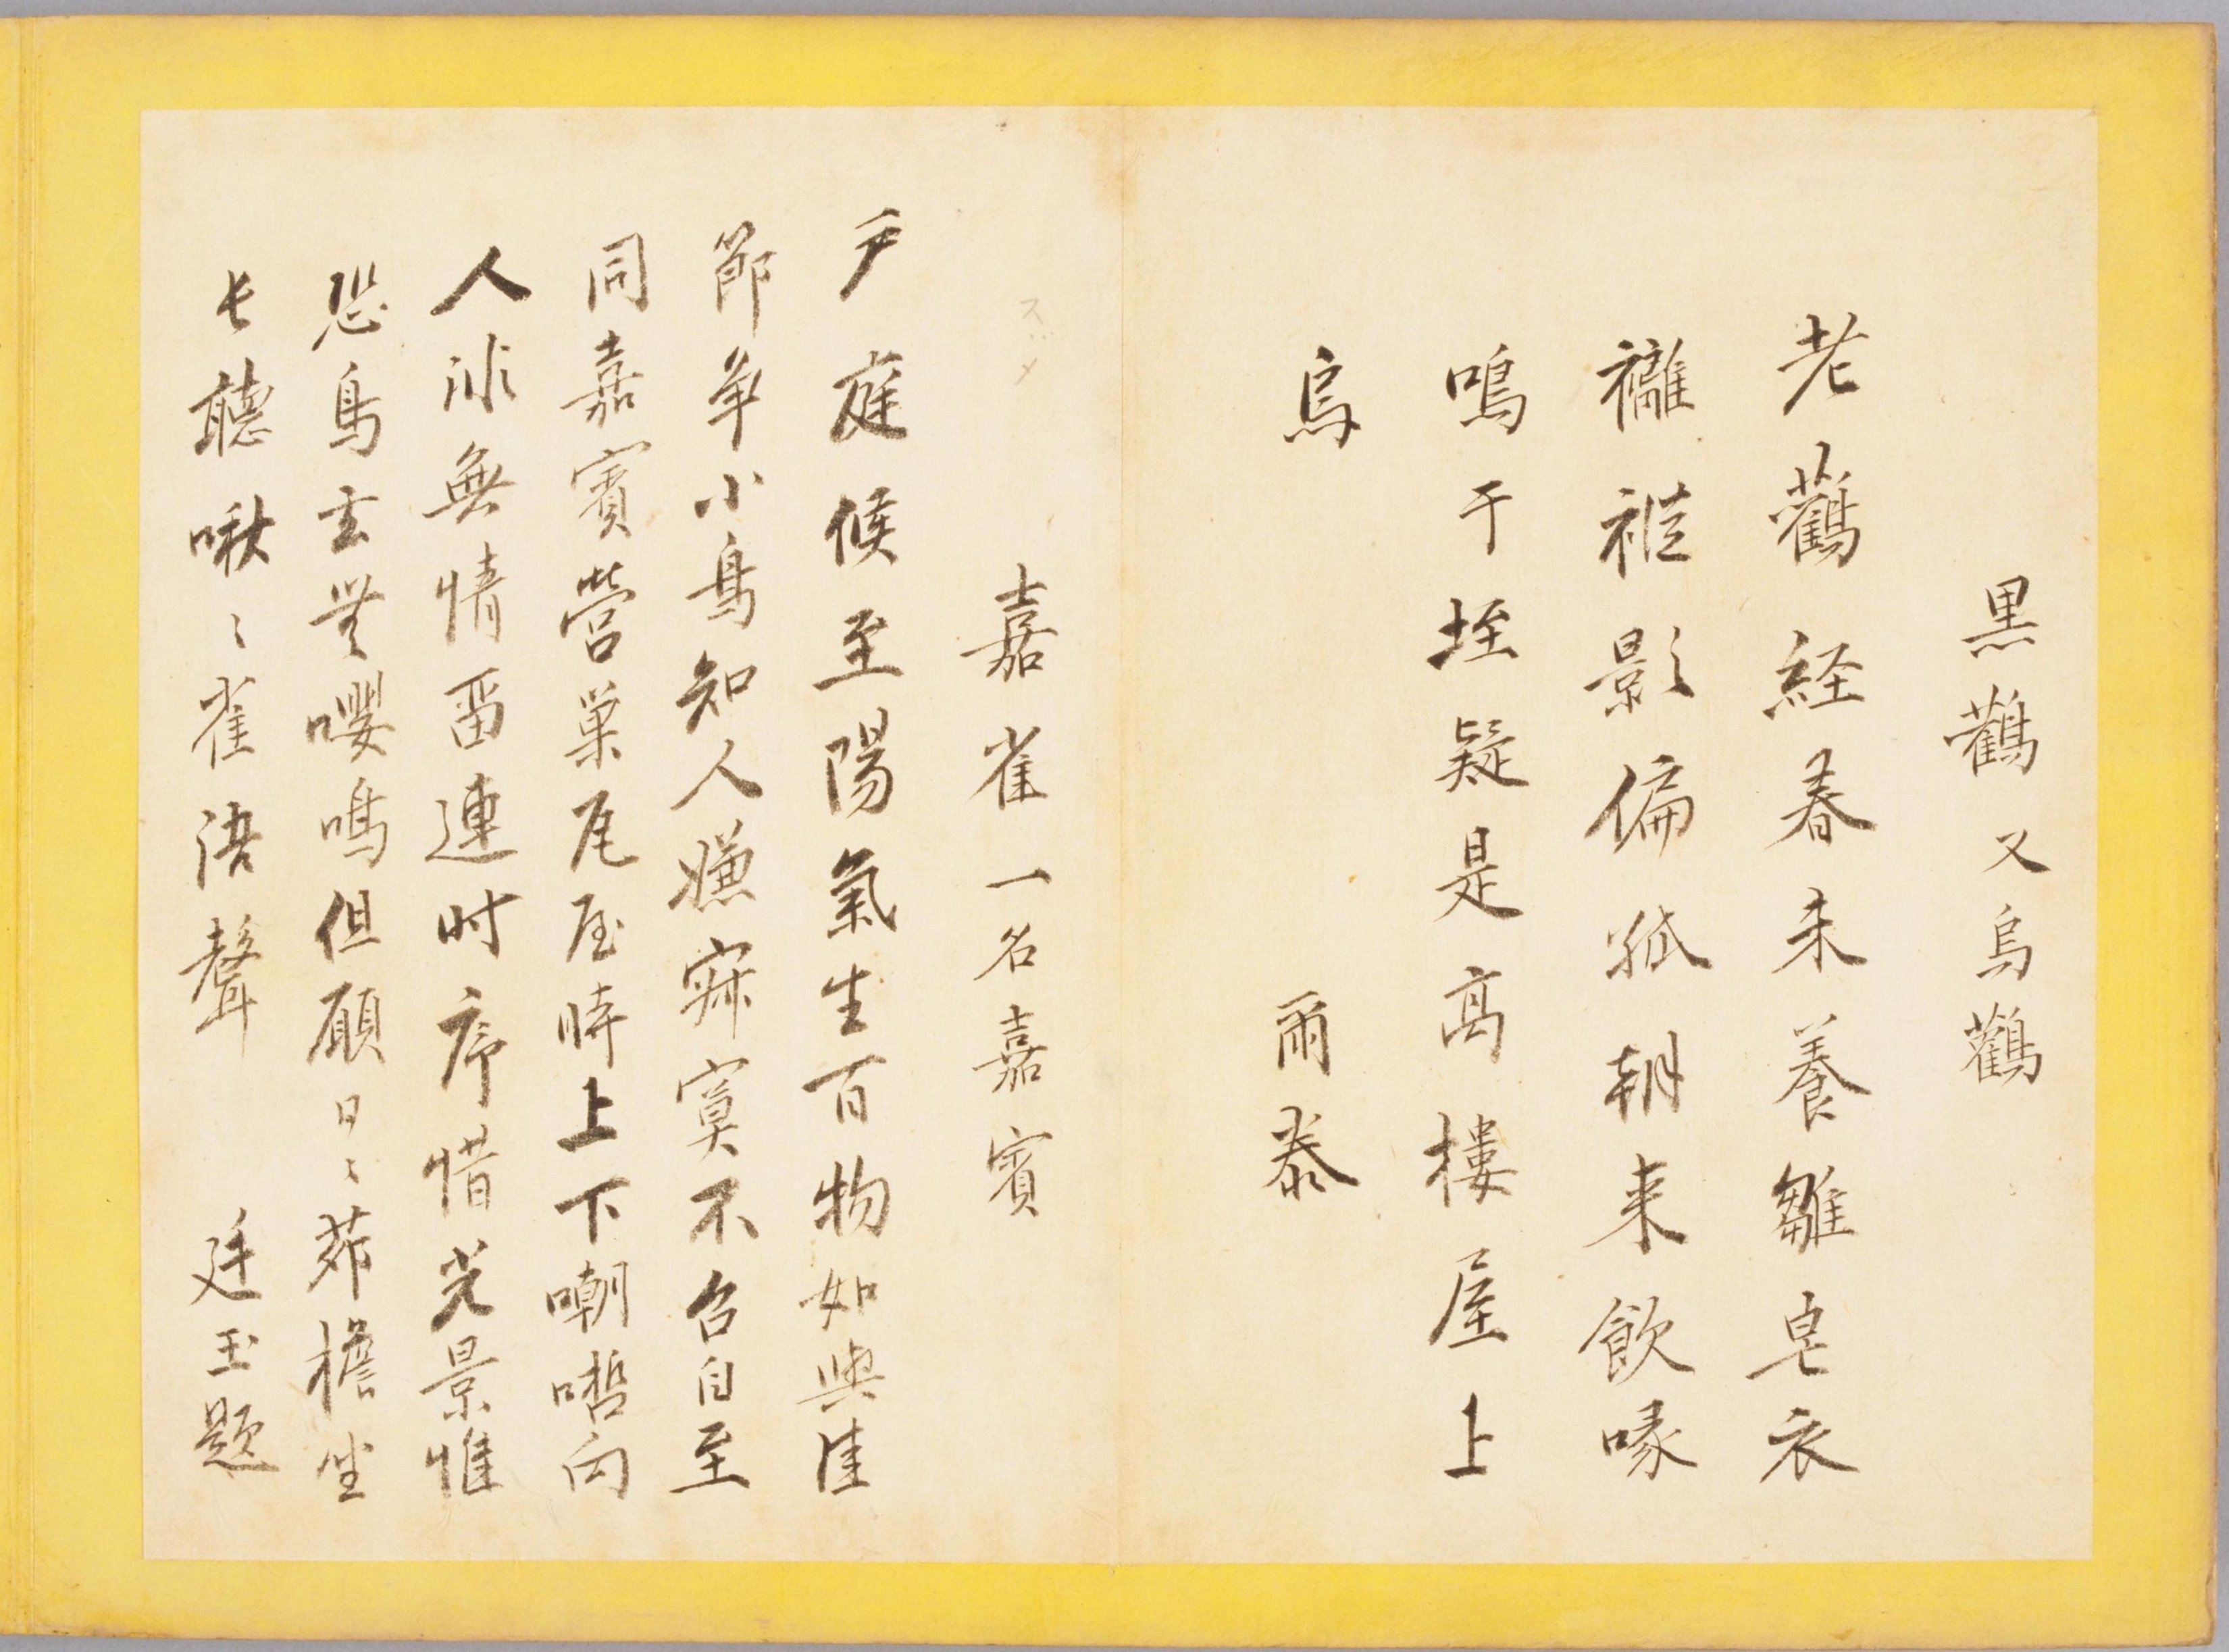 黒鸛又烏鸛
老鸛経春未養雛皂衣
褵褷影偏孤朝来飲啄
鳴于垤疑是高樓屋上
烏
爾泰
スゞメ
嘉雀一名嘉賓
戸庭候至陽氣生百物如與佳
節争小鳥知人嫌寂寞不召自至
同嘉賓營巣瓦屋時上下嘲哳向
人非無情留連时序惜光景惟
恐鳥去無嚶鳴但願日〻茆檐坐
長聽啾〻雀語聲 廷玉題